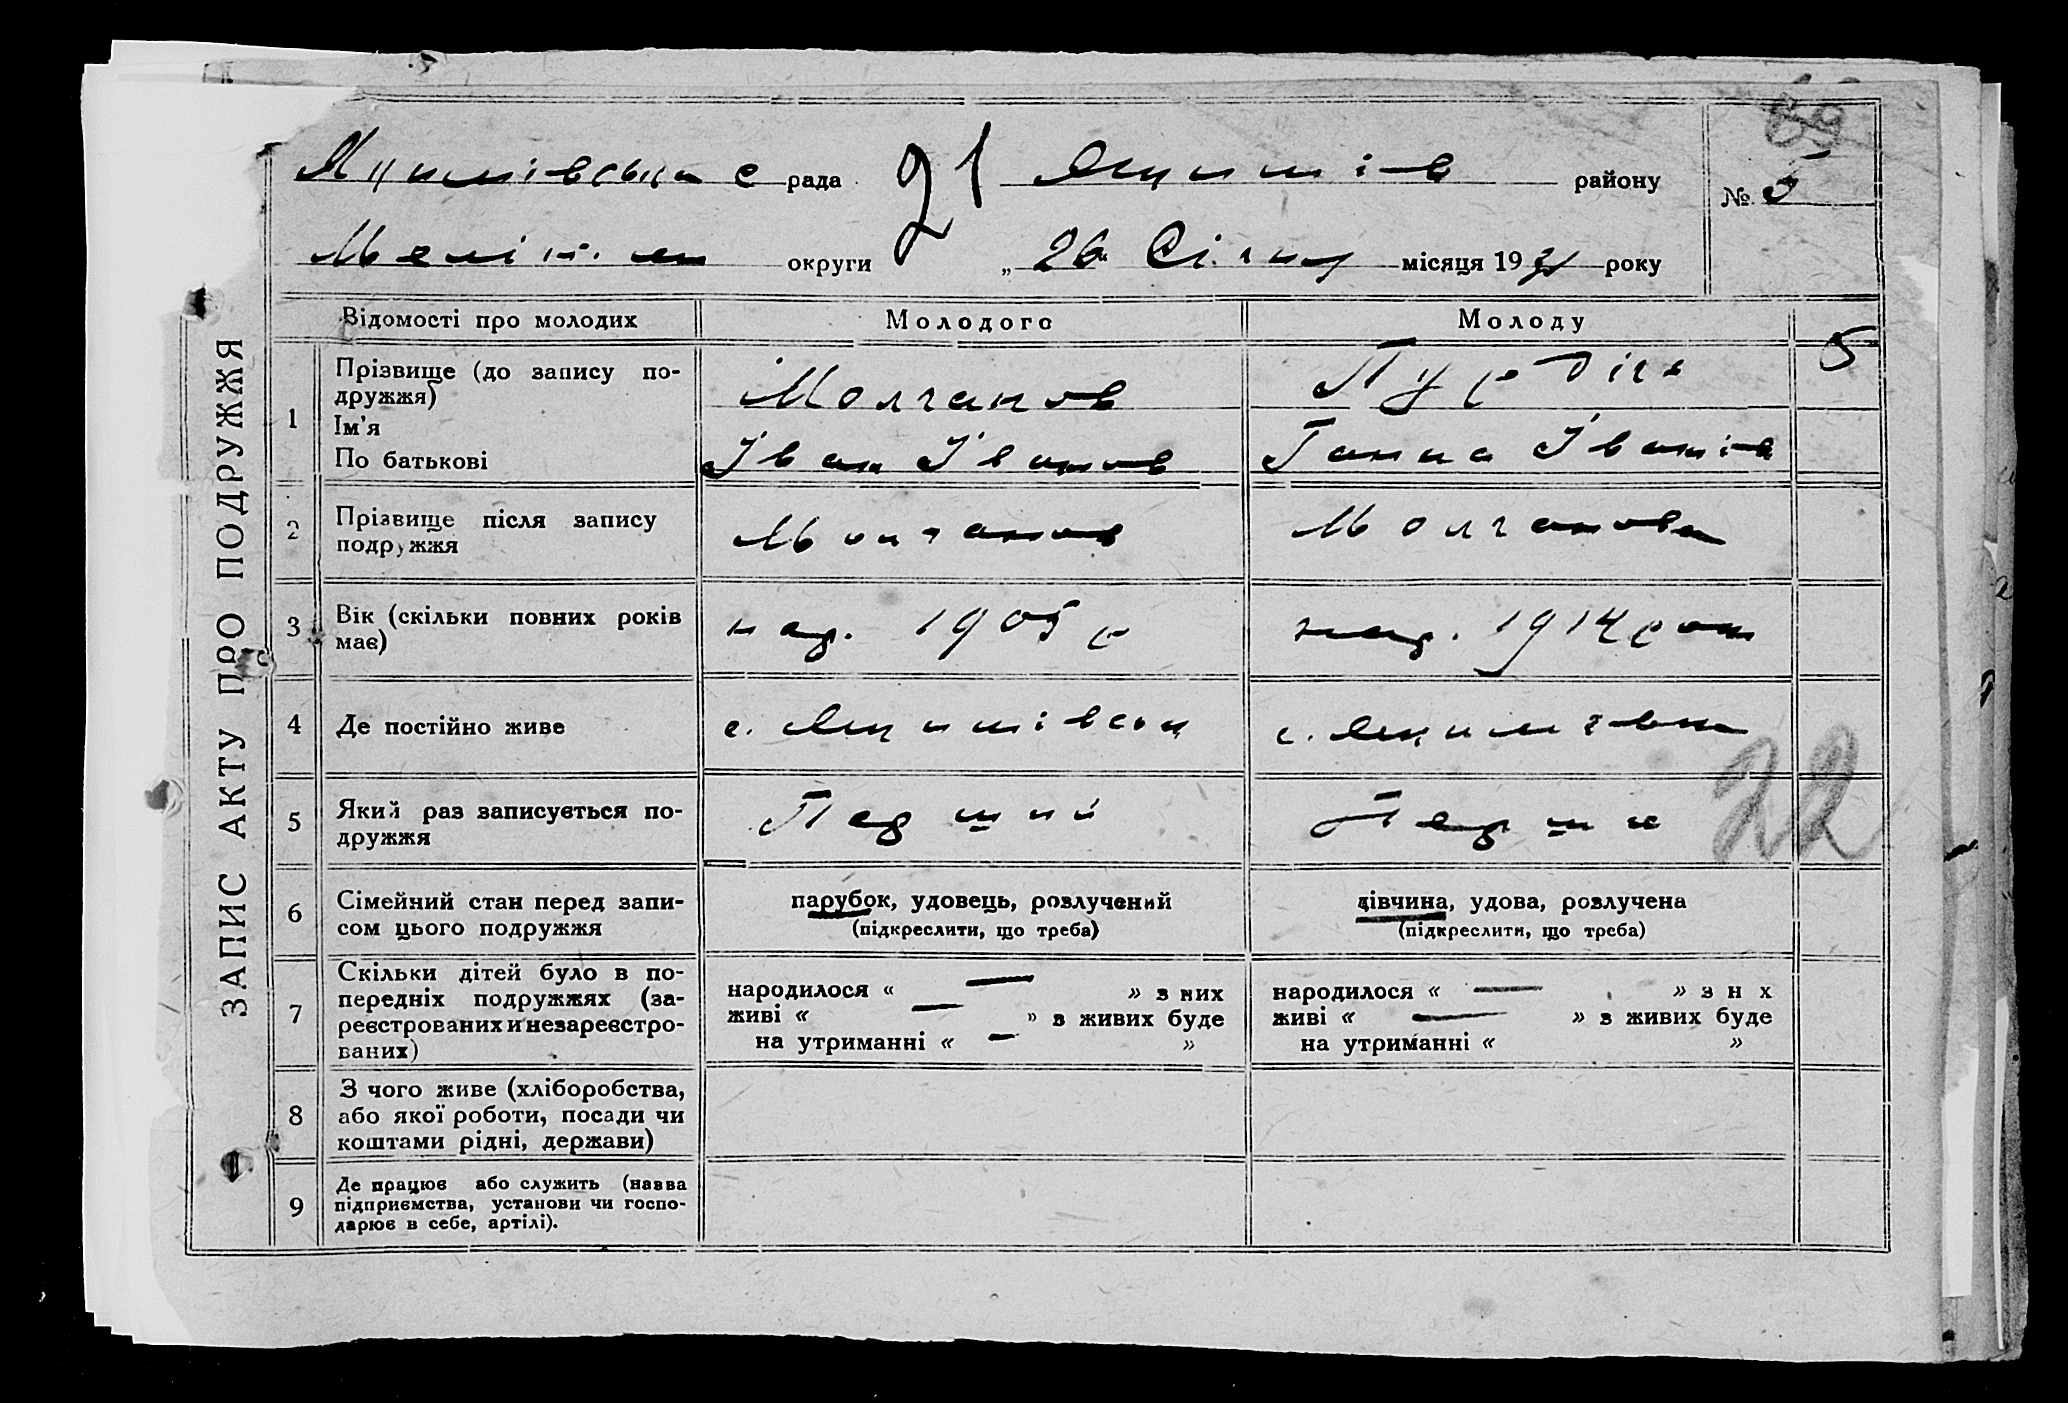 69
Якимівська с рада 21 Якимів району № 5
Меліт. ок округи „ 26 “ Січня місяця 1931 року
ЗАПИС АКТУ ПРО ПОДРУЖЖЯ
Відомості про молодих Молодого Молоду
1 Прізвище (до запису по-
дружжя) Молчанов 5
Ім'я
По батькові Іван Іванов Ганна Іванів
2 Прізвище після запису
подружжя Молчанов Молчанова
3 Вік (скільки повних років
має) нар. 1905 р нар. 1914 рок
4 Де постійно живе с. с. Якимівка
5 Який раз записується по-
дружжя Перший Перша
22
6 Сімейний стан перед запи-
сом цього подружжя
парубок, удовець, розлучений дівчина, удова, розлучена
(підкреслити, що треба) (підкреслити, що треба)
7 Скільки дітей було в по-
передніх подружжях (за-
реєстрованих и незареєстро-
ваних)
народилося « — » з них народилося « — » з н х
живі « — » з живих буде живі « — » з живих буде
на утриманні « — » на утриманні « »
8 З чого живе (хліборобства,
або якої роботи, посади чи
коштами рідні, держави)
9 Де працює або служить (назва
підприємства, установи чи госпо-
дарює в себе, артілі).